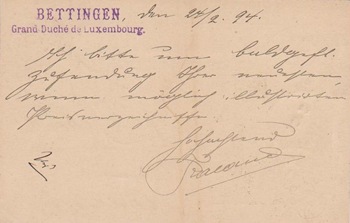 BETTINGEN, den 24/2. 94.
Grand Duché de Luxembourg.
Ich bitte um baldgefl.
Zusendung Ihrer neuesten,
wenn möglich illustrierten
Preisverzeichnisse
Hochachtend